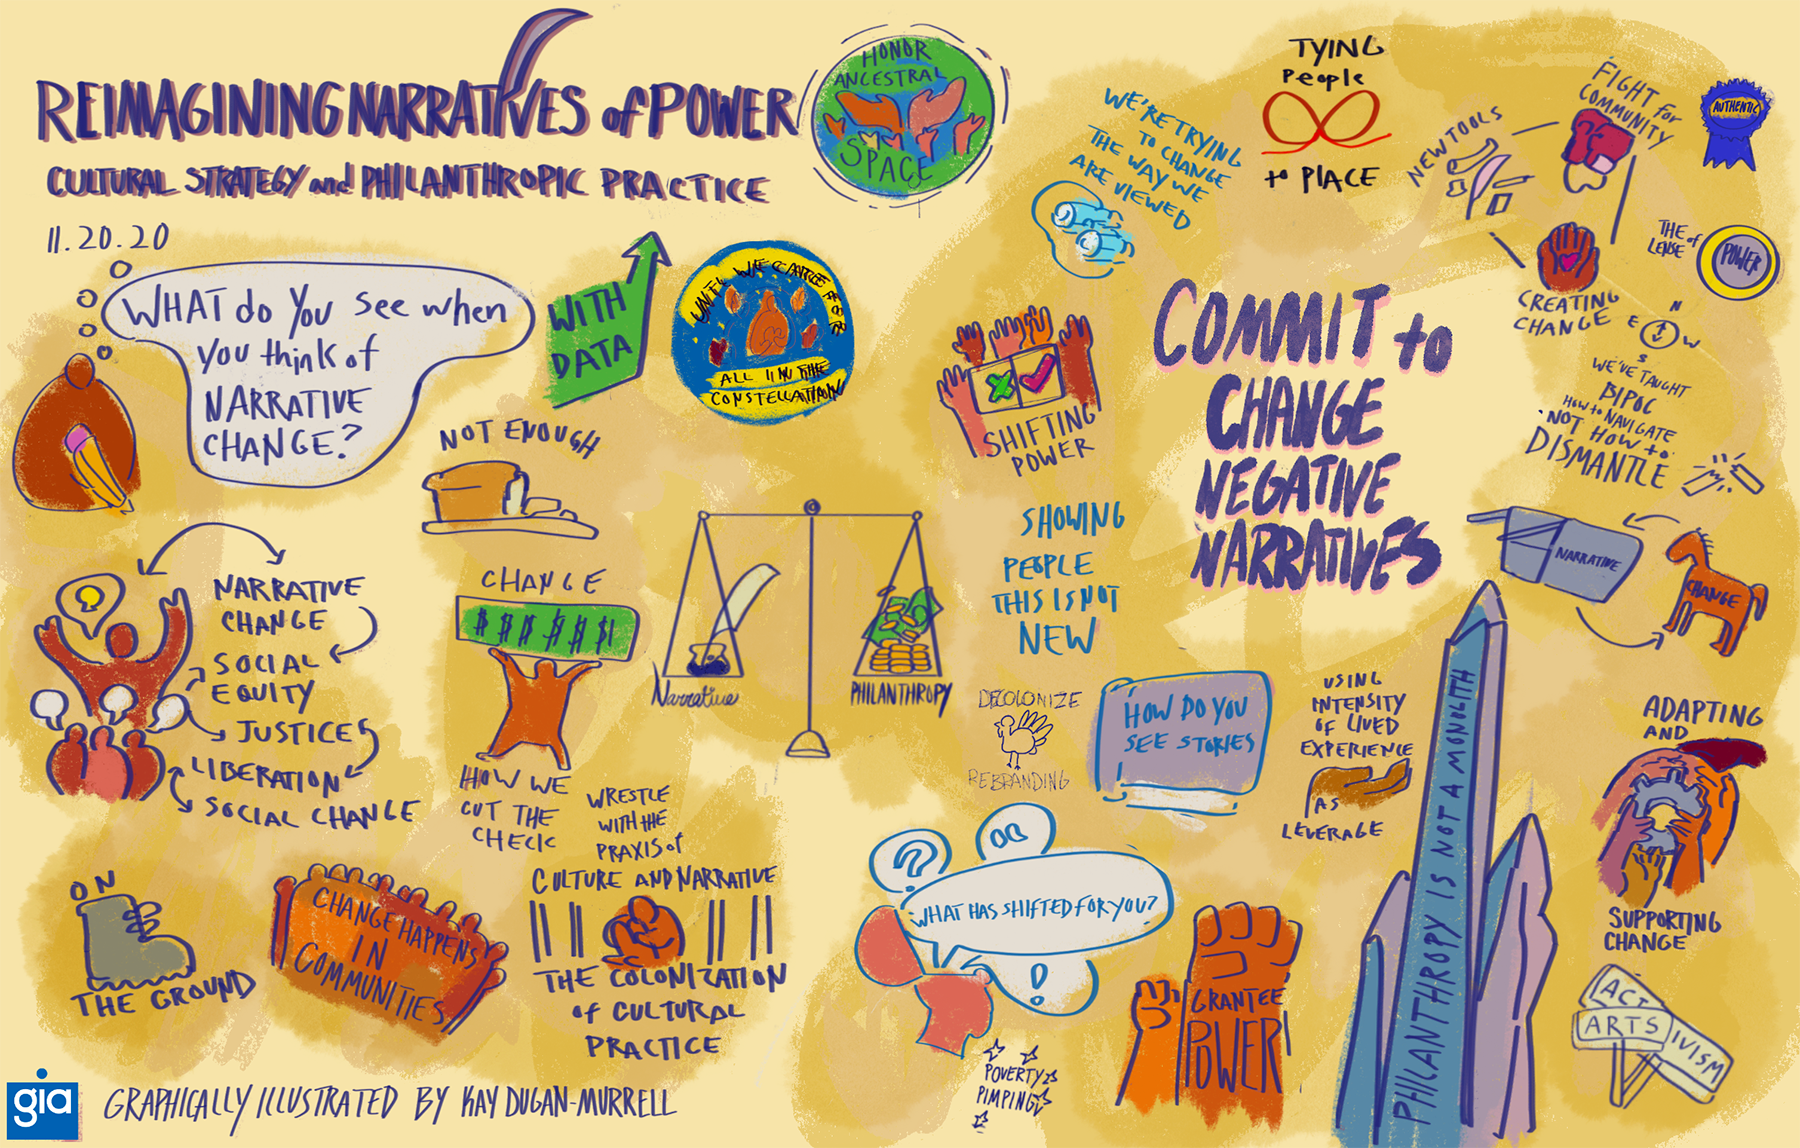 REIMAGINING NARRATIVES of POWER
CULTURAL STRATEGY and PHILANTHROPIC PRACTICE
11.20.20
HONOR
ANCESTRAL
SPACE
WHAT do You see when
you think of
NARRATIVE
CHANGE?
WITH
DATA
UNTIL WE CARE FOR
ALL IN THE
CONSTELLATION
NOT ENOUGH
NARRATIVE
CHANGE
SOCIAL
EQUITY
JUSTICES
LIBERATION
SOCIAL CHANGE
CHANGE
$ $ $ $ $ $
HOW WE
CUT THE
CHECK
Narrative
PHILANTHROPY
ON
THE GROUND
CHANGE HAPPENS
IN
COMMUNITIES
WRESTLE
WITH THE
PRAXIS of
CULTURE AND NARRATIVE
THE COLONIZATION
of CULTURAL
PRACTICE
gia
GRAPHICALLY ILLUSTRATED BY KAY DUGAN-MURRELL
WE'RE TRYING
TO CHANGE
THE WAY WE
ARE VIEWED
TYING
People
to PLACE
NEW TOOLS
FIGHT for
COMMUNITY
AUTHENTIC
CREATING
CHANGE
THE
LENSE of
POWER
N
E W
S
WE'VE TAUGHT
BIPOC
HOW to NAVIGATE
NOT HOW to
DISMANTLE
SHIFTING
POWER
COMMIT to
CHANGE
NEGATIVE
NARRATIVES
SHOWING
PEOPLE
THIS IS NOT
NEW
NARRATIVE
CHANGE
DECOLONIZE
REBRANDING
HOW DO YOU
SEE STORIES
USING
INTENSITY
OF LIVED
EXPERIENCE
AS
LEVERAGE
PHILANTHROPY IS NOT A MONOLITH
ADAPTING
AND
SUPPORTING
CHANGE
?
WHAT HAS SHIFTED FOR YOU?
!
POVERTY
PIMPING
GRANTEE
POWER
ACT
ARTS
IVISM